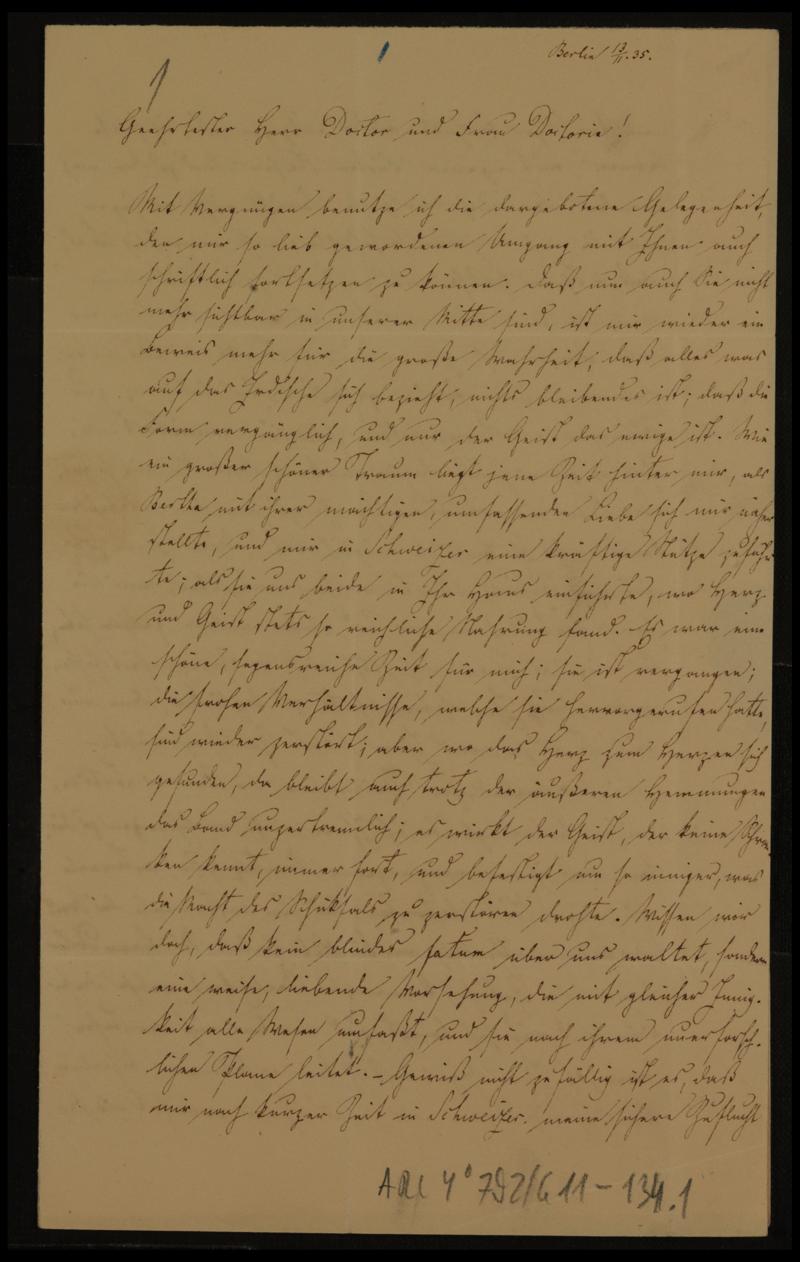 1
Berlin 13/11. 35.
Geehrtester Herr Doctor und Frau Doctorin!
Mit Vergnügen benutze ich die dargebotene Gelegenheit,
den mir so lieb gewordenen Umgang mit Ihnen auch
schriftlich fortsetzen zu können. Daß nun auch Sie nicht
mehr sichtbar in unserer Mitte sind, ist mir wieder ein
Beweis mehr für die große Wahrheit, daß alles was
auf das Irdische sich bezieht, nichts bleibendes ist; daß die
Form vergänglich, und nur der Geist das ewige ist. Wie
ein großer schöner Traum liegt jene Zeit hinter mir, als
Bertha mit ihrer mächtigen, umfassenden Liebe sich mir näher
stellte, und mir in Schweizer eine kräftige Stütze zuführ-
te; als sie uns beide in Ihr Haus einführte, wo Herz
und Geist stets so reichliche Nahrung fand. Es war eine
schöne, segensreiche Zeit für mich; sie ist vergangen;
die frohen Verhältnisse, welche sie hervorgerufen hatte,
sind wieder zerstört; aber wo das Herz zum Herzen sich
gefunden, da bleibt auch trotz der äußeren Hemmungen
das Band unzertrennlich; es wirkt der Geist, der keine Schran-
ken kennt, immer fort, und befestigt um so inniger, was
die Macht des Schicksals zu zerstören drohte. Wissen wir
doch, daß kein blindes fatum über uns waltet, sondern
eine weise, liebende Vorsehung, die mit gleicher Innig-
keit alle Wesen umfaßt, und sie nach ihrem unerforsch-
lichen Plane leitet. – Gewiß nicht zufällig ist es, daß
mir nach kurzer Zeit in Schweizer meine sichere Zuflucht
ARC 4° 792/G 11-134.1